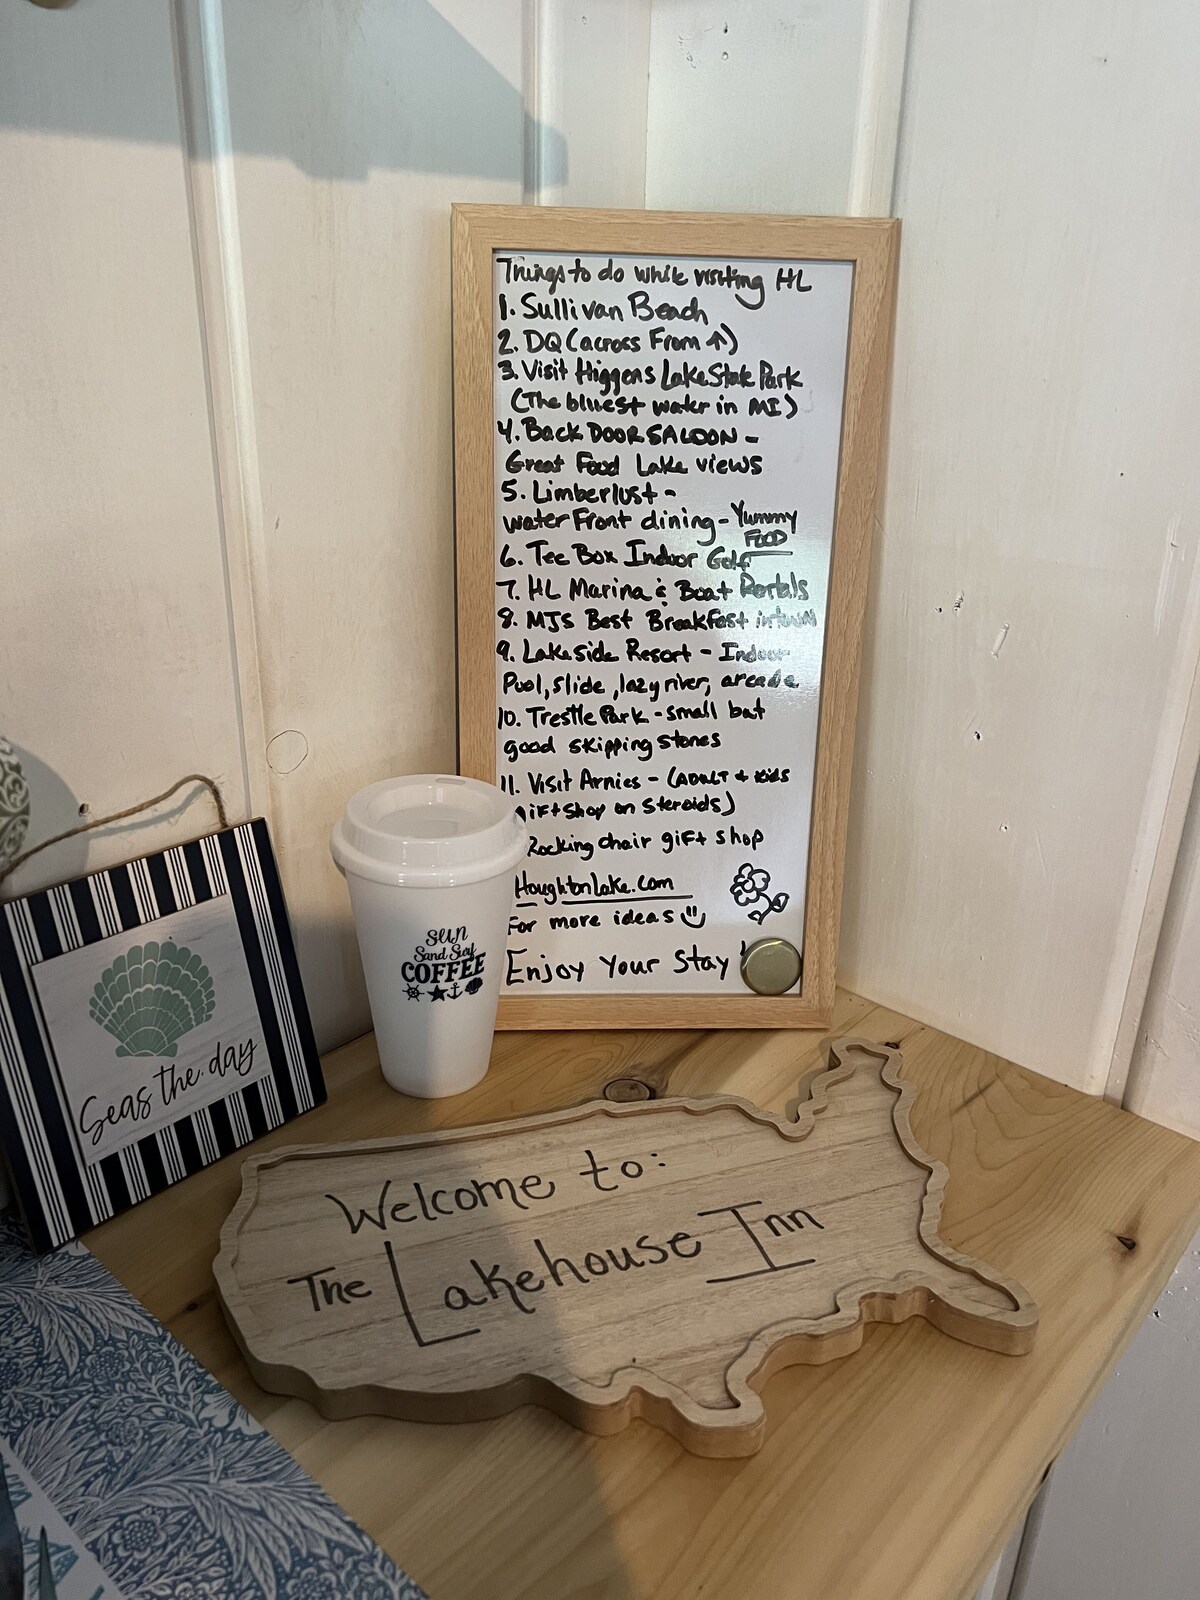 Things to do while visiting HL
1. Sullivan Beach
2. DQ (across From ↑)
3. Visit Higgens Lake State Park
(The bluest water in MI)
4. Back DOOR SALOON -
Great Food Lake views
5. Limberlust -
water Front dining - Yummy
FOOD
6. Tee Box Indoor Golf
7. HL Marina & Boat Rentals
8. MJS Best Breakfast intown
9. Lakeside Resort - Indoor
Pool, slide, lazy river, arcade
10. Trestle Park - small but
good skipping stones
11. Visit Arnies - (ADULT + kids
giftshop on steroids)
Rocking chair gift shop
HoughtonLake.com
For more ideas
Enjoy Your Stay!
SUN
Sand Surf
COFFEE
Seas the day
Welcome to:
The Lakehouse Inn